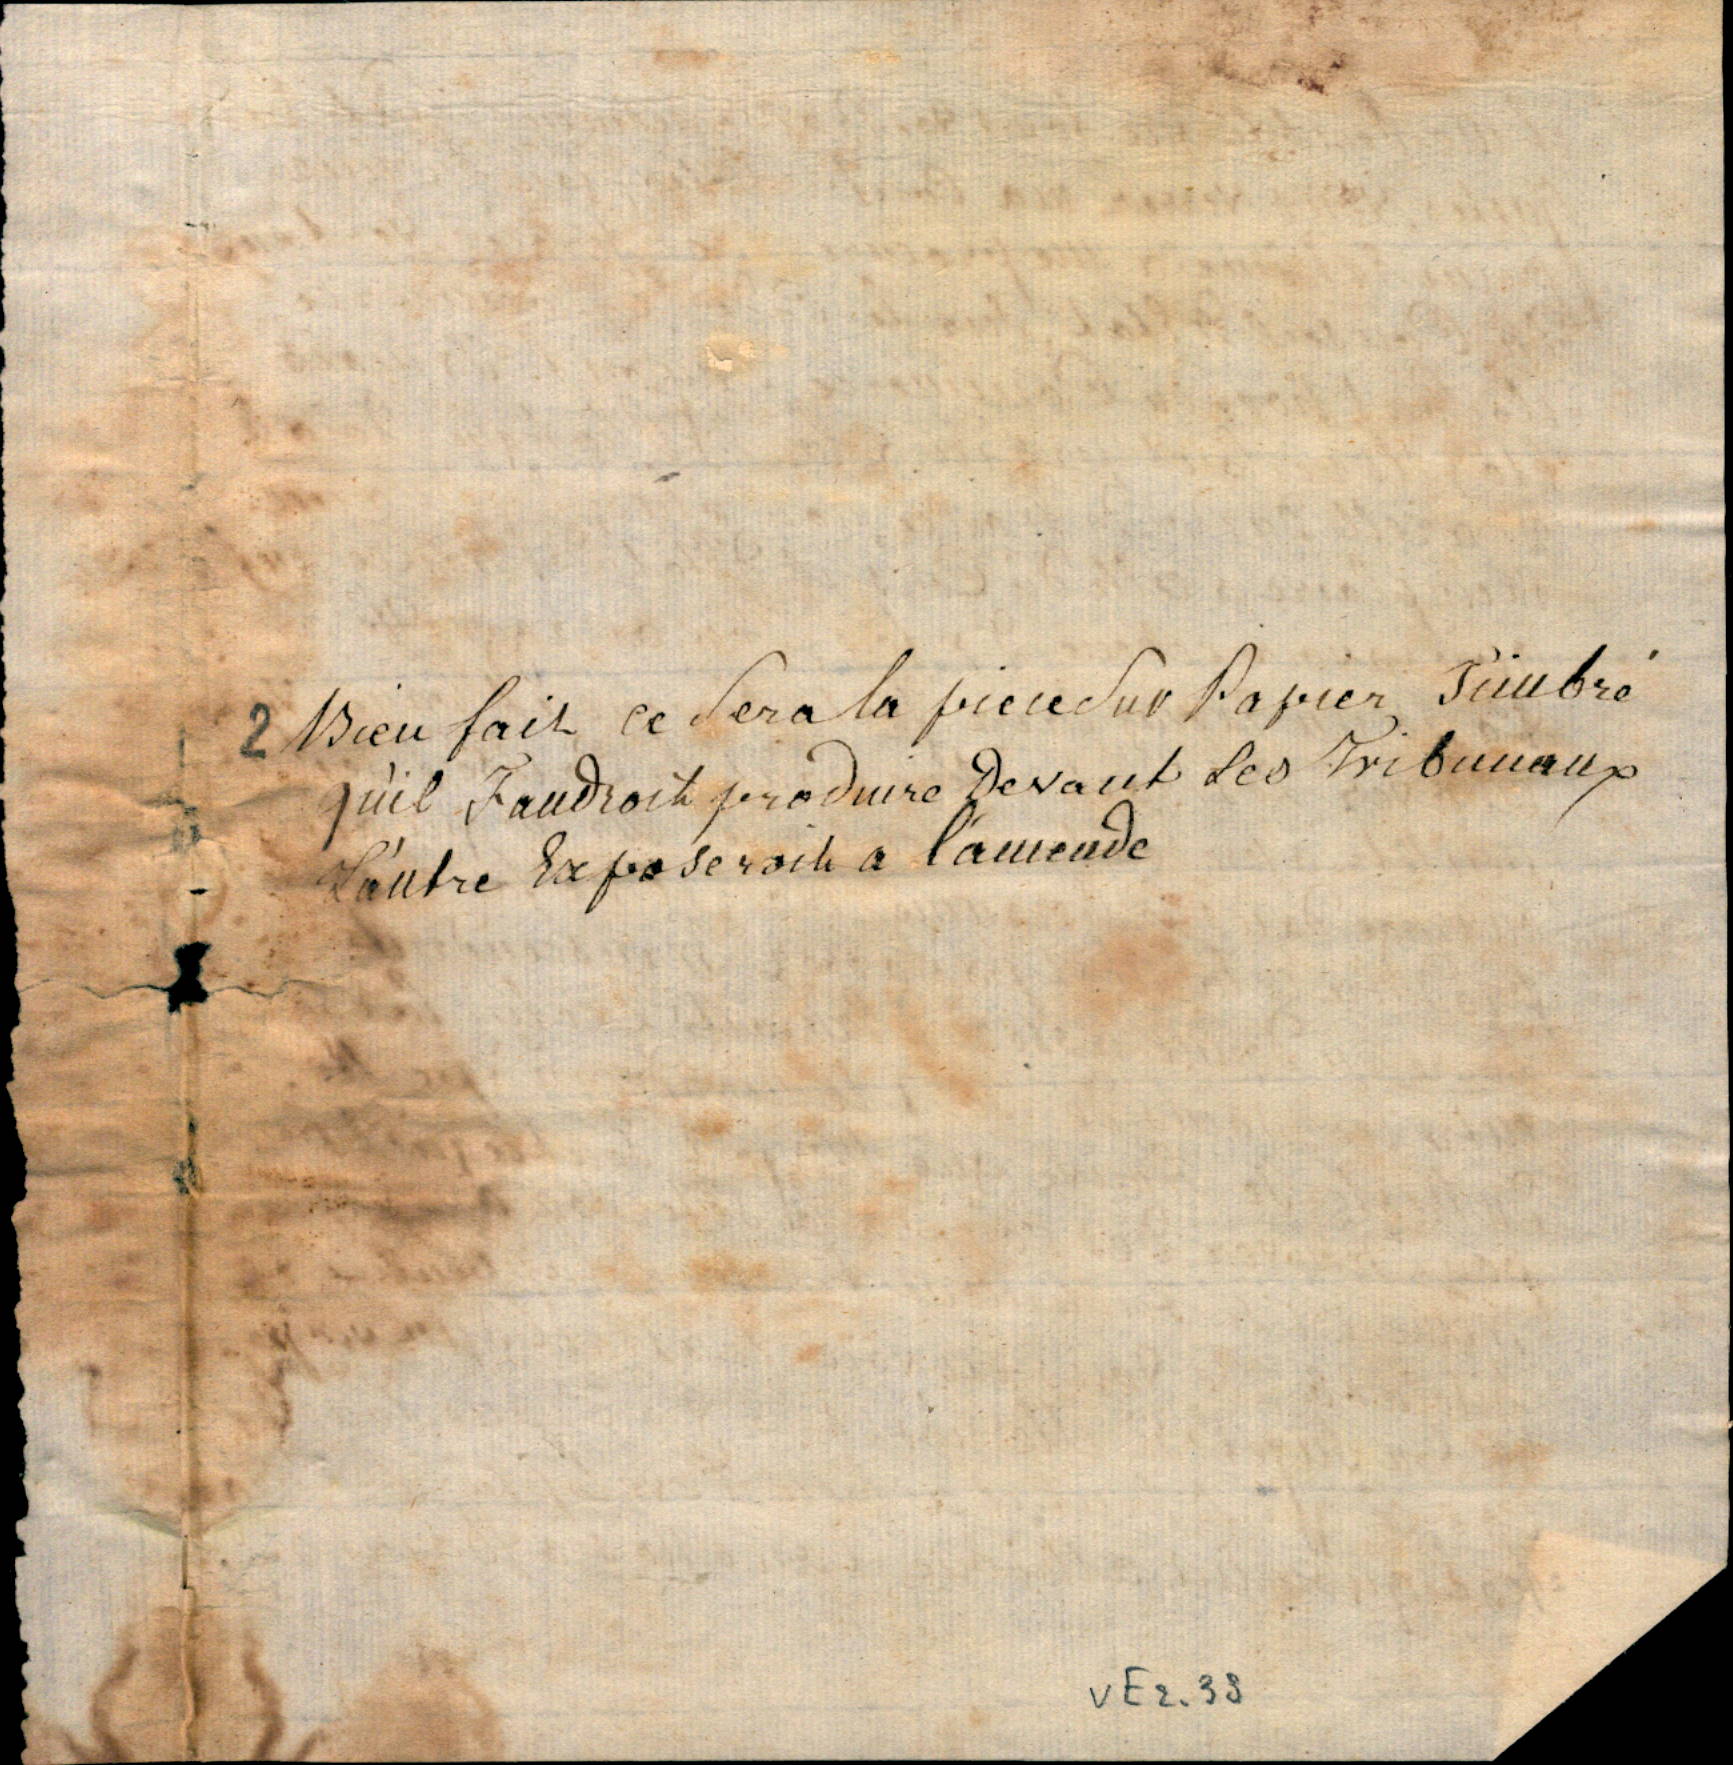 2 Bien fait ce Sera la piece Sur Papier Timbré
qu'il Faudroit produire Devant Les Tribunaux
L'autre Exposeroit a l'amende
VE2.38